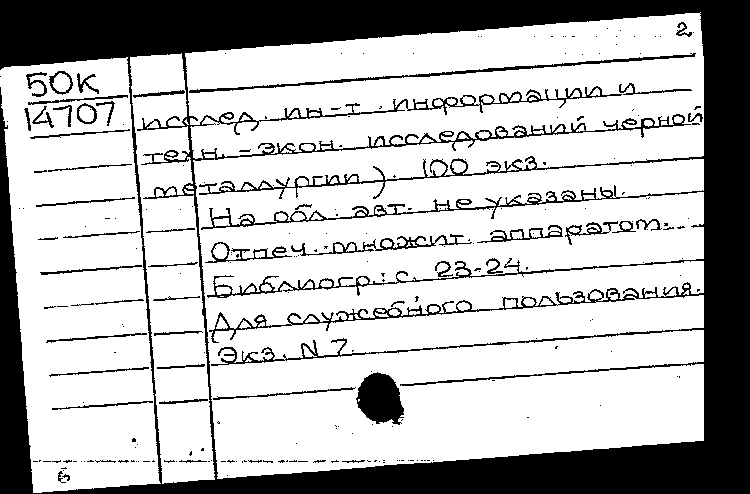 2
50К
14707
исслед. ин-т. информации и
техн.-экон. исследований черной
металлургии). 100 экз.
На обл. авт. не указаны.
Отпеч. множит. аппаратом.
Библиогр.: с. 23-24.
Для служебного пользования.
Экз. N 7.
6